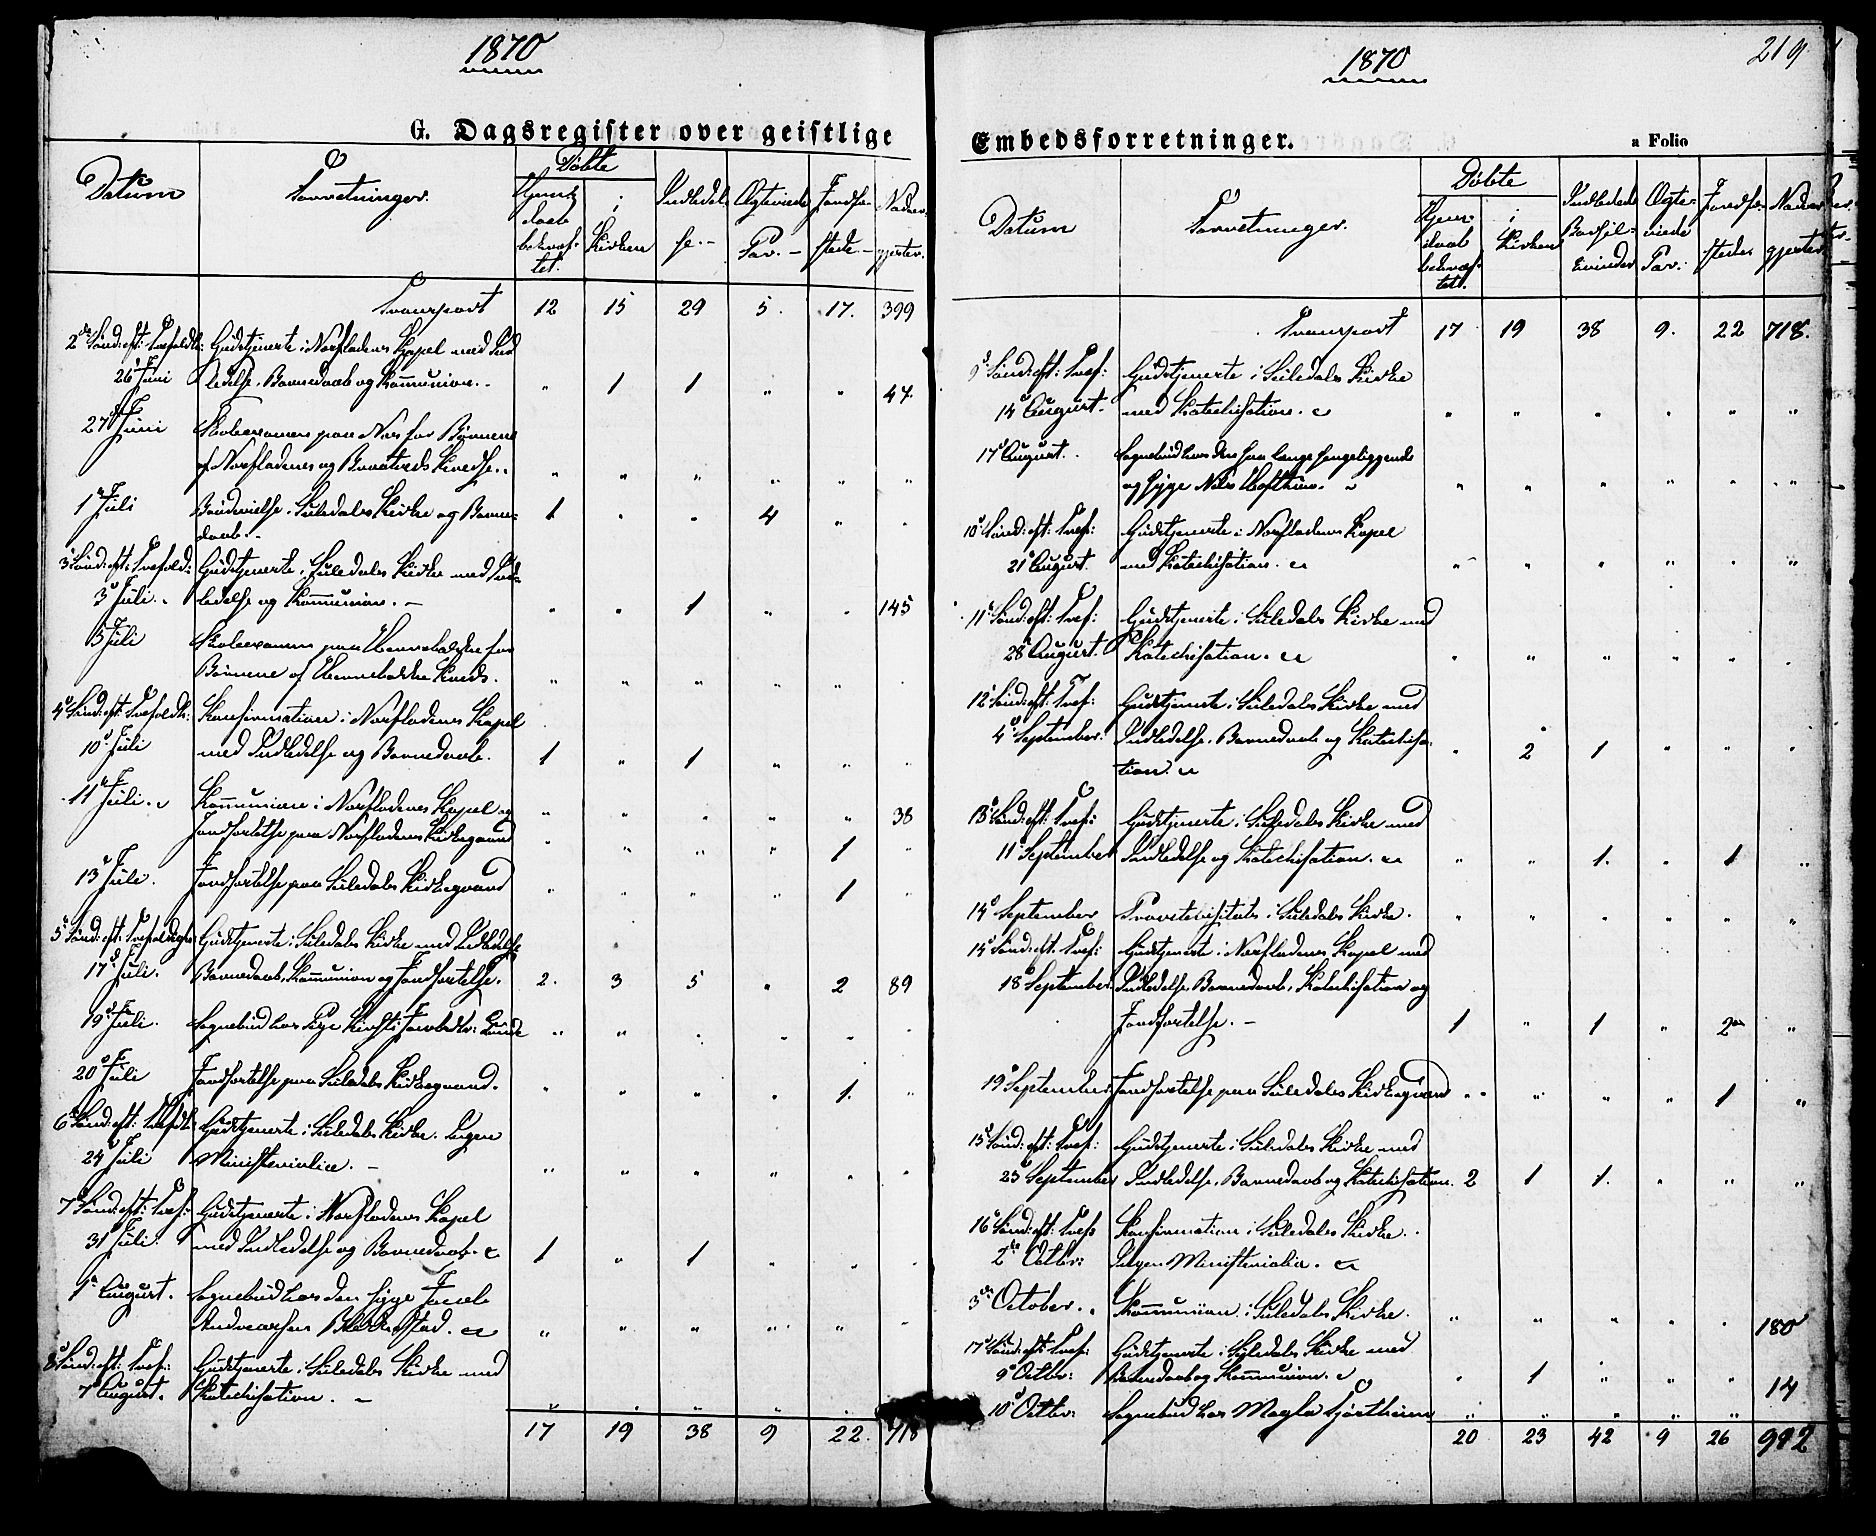 1870
G. Dagsregister over geistlige
Datum
Forretninger.
Døbte
Hjemmedaab bekræftet.
i Kirken
Indledelse.
Ægteviede Par.
Jordfæstede
Nadvergjester.
Transport 12 15 29 5. 17. 399
2den Sønd: eft: Trefoldh: Gudstjeneste i Norfladenes Kapel med Ind
26 Juni ledelse, Barnedaab og Kommunion. " 1 1 " " 47.
27 Juni Skoleexamen paa Næs for Børnene
af Norfladenes og Kreds. " " " " " "
1 Juli Brudevielse i Suledals Kirke og Barne- 1 " " 4 " "
daab.
3 Sønd: eft: Trefold: Gudstjeneste i Suledals Kirke med Ind-
3 Juli ledelse og Kommunion. " " 1 " " 145
5 Juli Skoleexamen paa for
Børnene af Kreds. " " " " " "
4 Sønd: eft: Trefoldh: Konfirmation i Norfladenes Kapel
10 Juli med Indledelse og Barnedaab. 1 " 1 " " "
11 Juli. Kommunion i Norfladenes Kapel og " " " " " 38
Jordfæstelse paa Norfladenes Kirkegaard " " " " 1 "
13 Juli. Jordfæstelse paa Suledals Kirkegaard " " " " 1 "
5 Sønd: eft: Gudstjeneste i Suledals Kirke med Indledelse,
17 Juli. Barnedaab, Kommunion og Jordfæstelse. 2. 3 5 " 2 89
19 Juli. Sognebud hos Pige Kirsti " " " " " "
20 Juli Jordfæstelse paa Suledals Kirkegaard. " " " " 1. "
6 Sønd: eft: Gudstjeneste i Suledals Kirke. Ingen
24 Juli Ministerialia. " " " " " "
7 Sønd: eft: Tref: Gudstjeneste i Norfladenes Kapel
31 Juli med Indledelse og Barnedaab. 1 " 1 " " "
1 August. Sognebud hos den syge Jacob
" " " " " "
8 Sønd: eft: Tref: Gudstjeneste i Suledals Kirke med
7 August. Katechisation. " " " " " "
17 19 38 9 22. 718
1870
219
Embedsforretninger.
a Folio
Datum
Forretninger.
Døbte
Hjemmedaab bekræftet.
i Kirken
Indledede Barselkvinder
Ægteviede Par.
Jordfæstede
Nadvergjester
Transport 17 19 38 9. 22 718.
9 Sønd: eft: Tref: Gudstjeneste i Suledals Kirke
14 August. med Katechisation. " " " " " "
17 August. Sognebud hos den saa længe sengeliggende
og syge Nils " " " " " "
10 Sønd: eft: Tref: Gudstjeneste i Norfladenes Kapel
21 August. med Katechisation. " " " " " "
11 Sønd: eft: Tref: Gudstjeneste i Suledals Kirke med
28 August. Katechisation. " " " " " "
12 Sønd: eft: Tref: Gudstjeneste i Suledals Kirke med
4 September. Indledelse, Barnedaab og Katechisa- " 2 1 " " "
tion.
13 Sønd: eft: Tref: Gudstjeneste i Suledals Kirke med
11 September Indledelse og Katechisation. " " 1. " 1 "
14 September Provstevisitats i Suledals Kirke. " " " " " "
14 Sønd: eft. Tref: Gudstjeneste i Norfladenes Kapel med
18 September Indledelse, Barnedaab, Katechisation og
Jordfæstelse. 1 " 1 " 2 "
19 September Jordfæstelse paa Suledals Kirkegaard " " " " 1 "
15 Sønd: eft: Tref: Gudstjeneste i Suledals Kirke med
25 September Indledelse, Barnedaab og Katechisation. 2 1 1. " " "
16 Sønd: eft: Tref: Konfirmation i Suledals Kirke.
2 Octbr: Ingen Ministerialia.
3 October. Kommunion i Suledals Kirke. " " " " " 180
17 Sønd: eft: Tref: Gudstjeneste i Suledals Kirke med
9 Octbr: Barnedaab og Kommunion. " 1 " " " 14
10 Octbr: Sognebud hos " " " " "
20 23 42 9 26 992